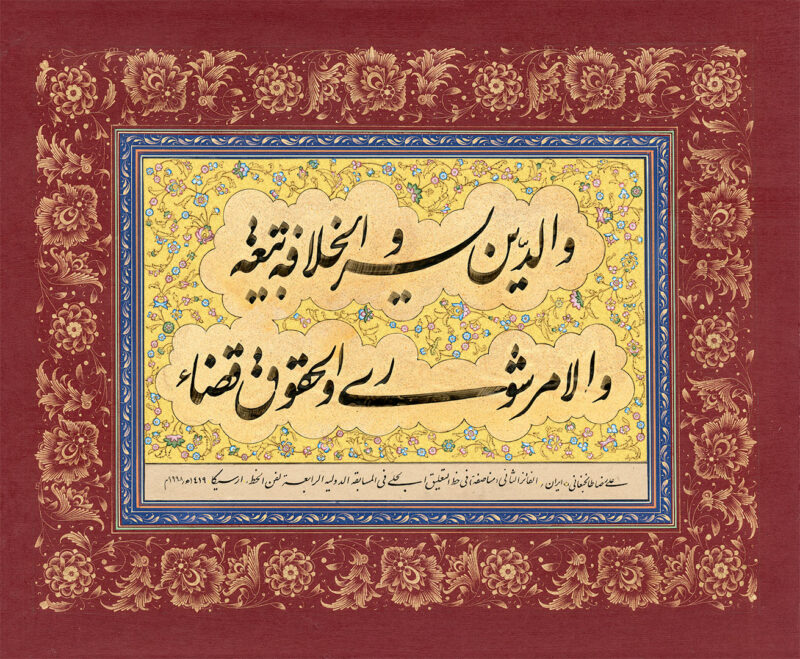 والدّين يسر والخلافة بيعة
والامر شورى والحقوق قضاء
ايران، الفائز الثاني (مناصفة) في خط التعليق الجلي في المسابقة الدولية الرابعة لفن الخط. ارسيكا ١٤١٩ھ/١٩٩٨م